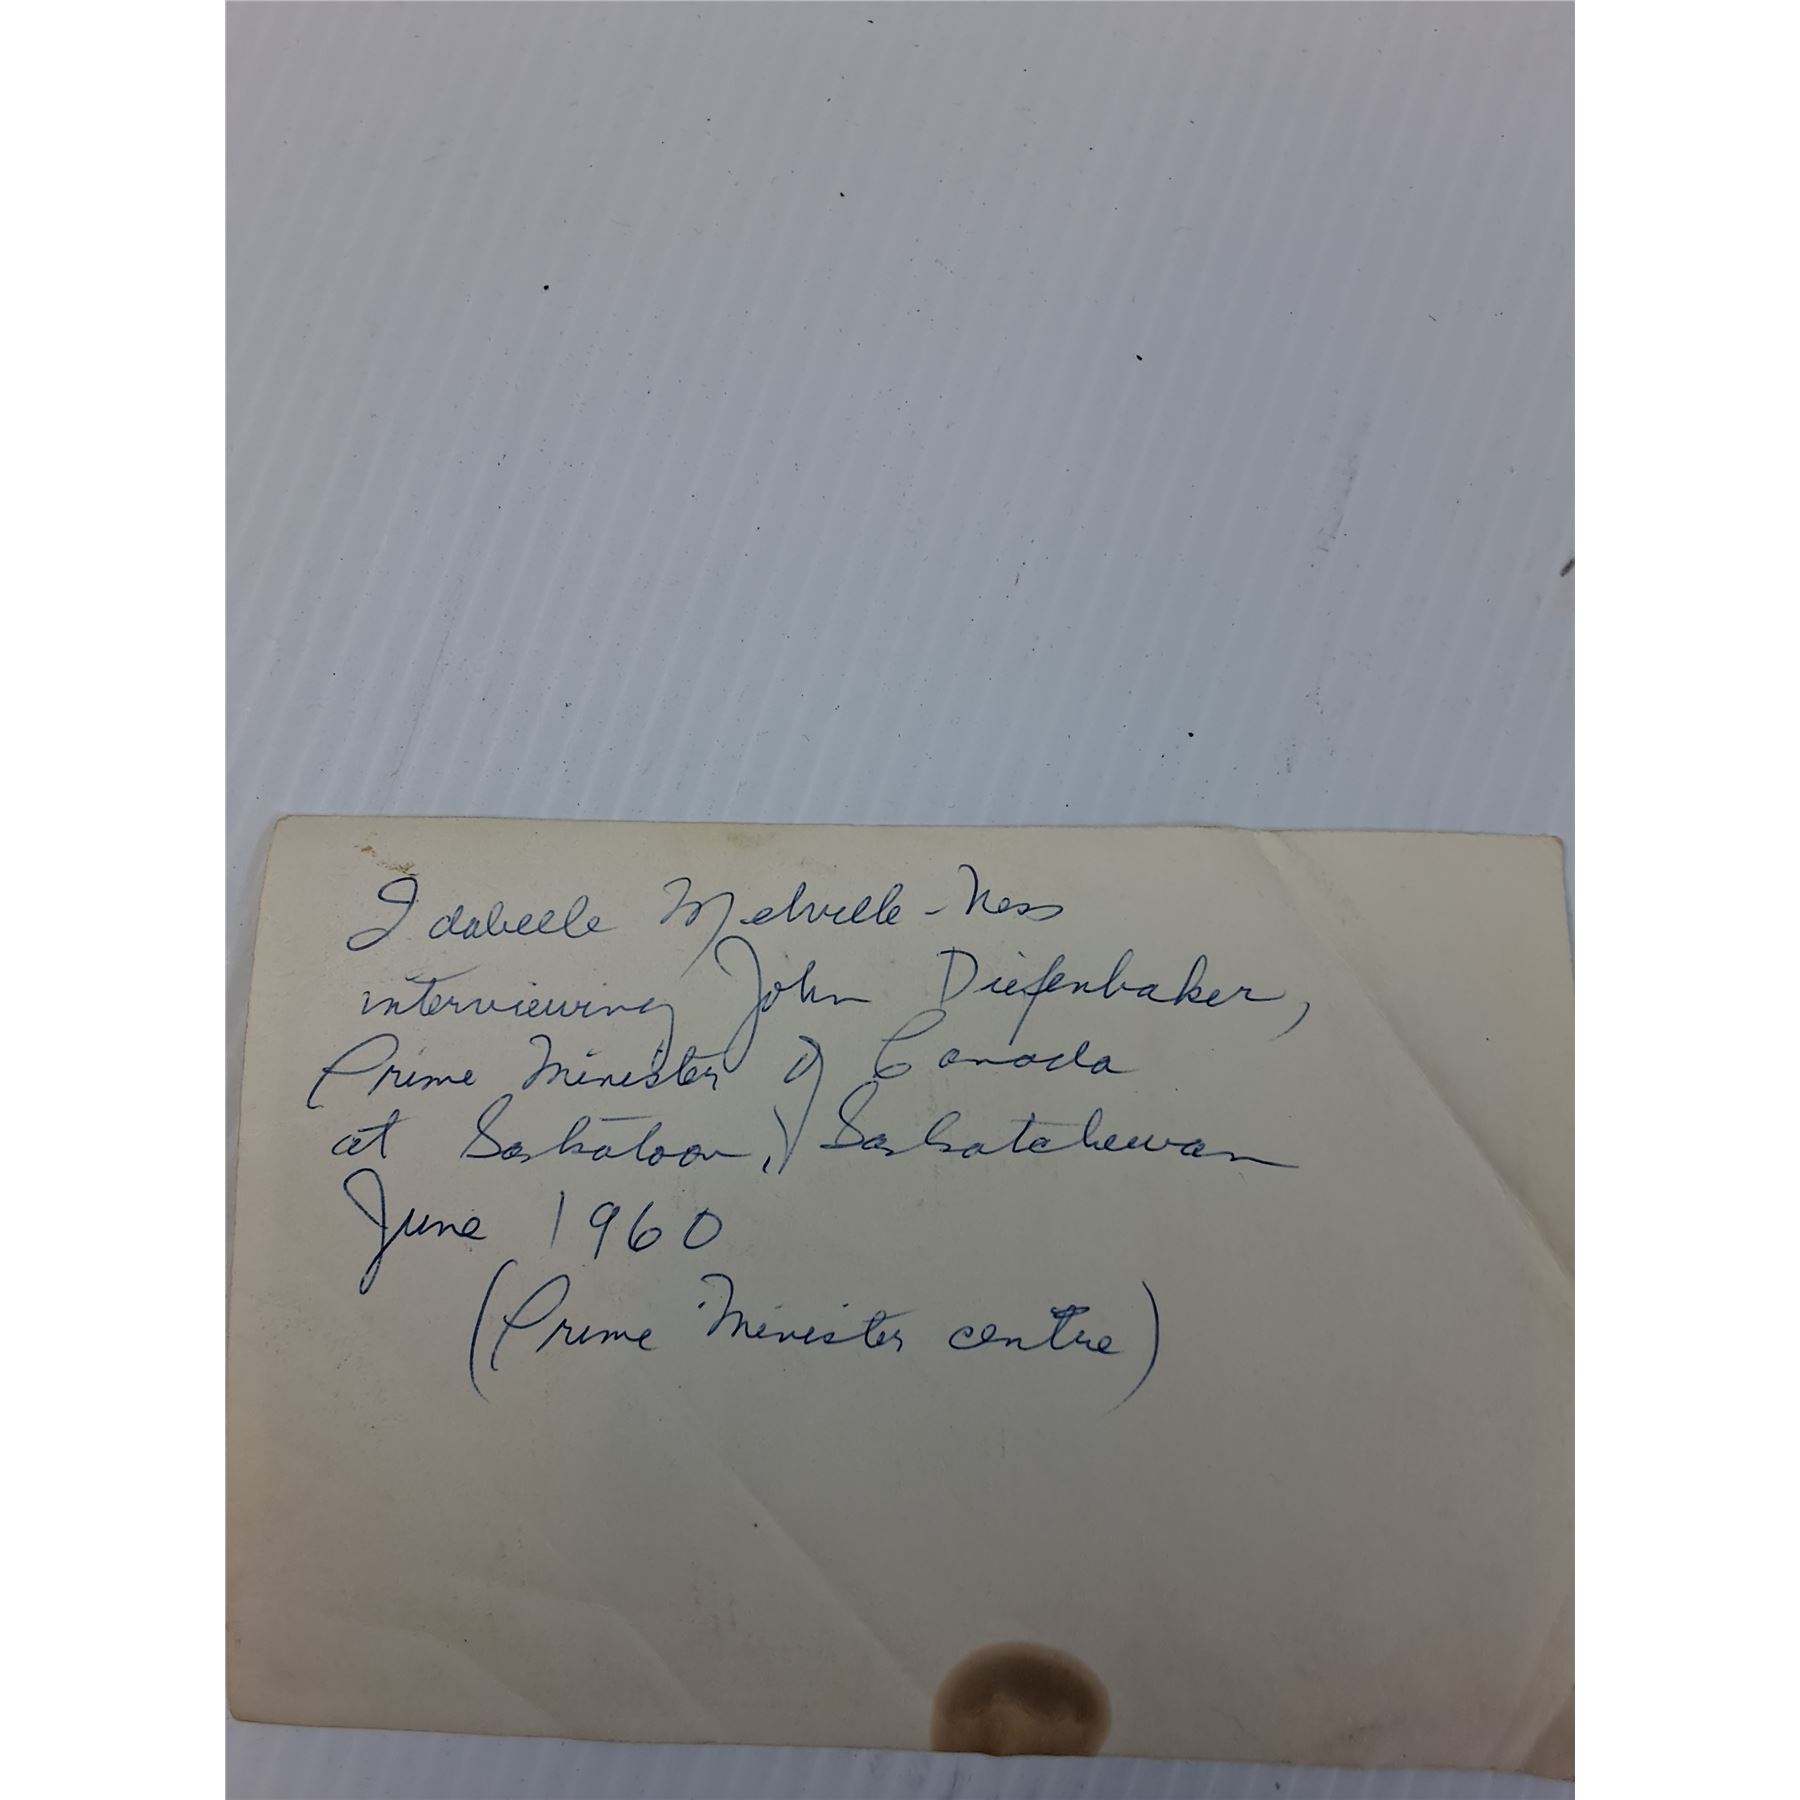 Idabelle Melville-Ness
interviewing John Diefenbaker,
Prime Minister of Canada
at Saskatoon, Saskatchewan
June 1960
(Prime Minister centre)